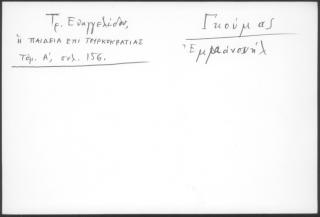 Τρ. Ευαγγελίδου,
Η ΠΑΙΔΕΙΑ ΕΠΙ ΤΟΥΡΚΟΚΡΑΤΙΑΣ
Τόμ. Α', σελ. 156.
Γκούμας
Ἐμμανουήλ